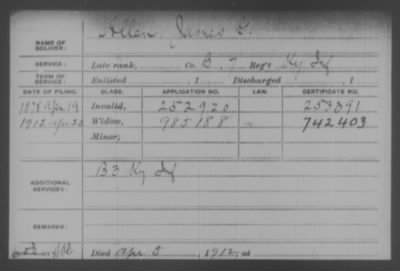 NAME OF SOLDIER: Allen, James
SERVICE: Late rank, Co. B. 7 Reg't Ky Inf
TERM OF SERVICE: Enlisted , 1 Discharged , 1
DATE OF FILING. CLASS. APPLICATION NO. LAW. CERTIFICATE NO.
1878 Apr 19 Invalid, 252920 253891
1912 Apr 22 Widow, 985188 742403
Minor;
ADDITIONAL SERVICES: B 3 Ky Inf
REMARKS:
Died Apr 5, 1912, at